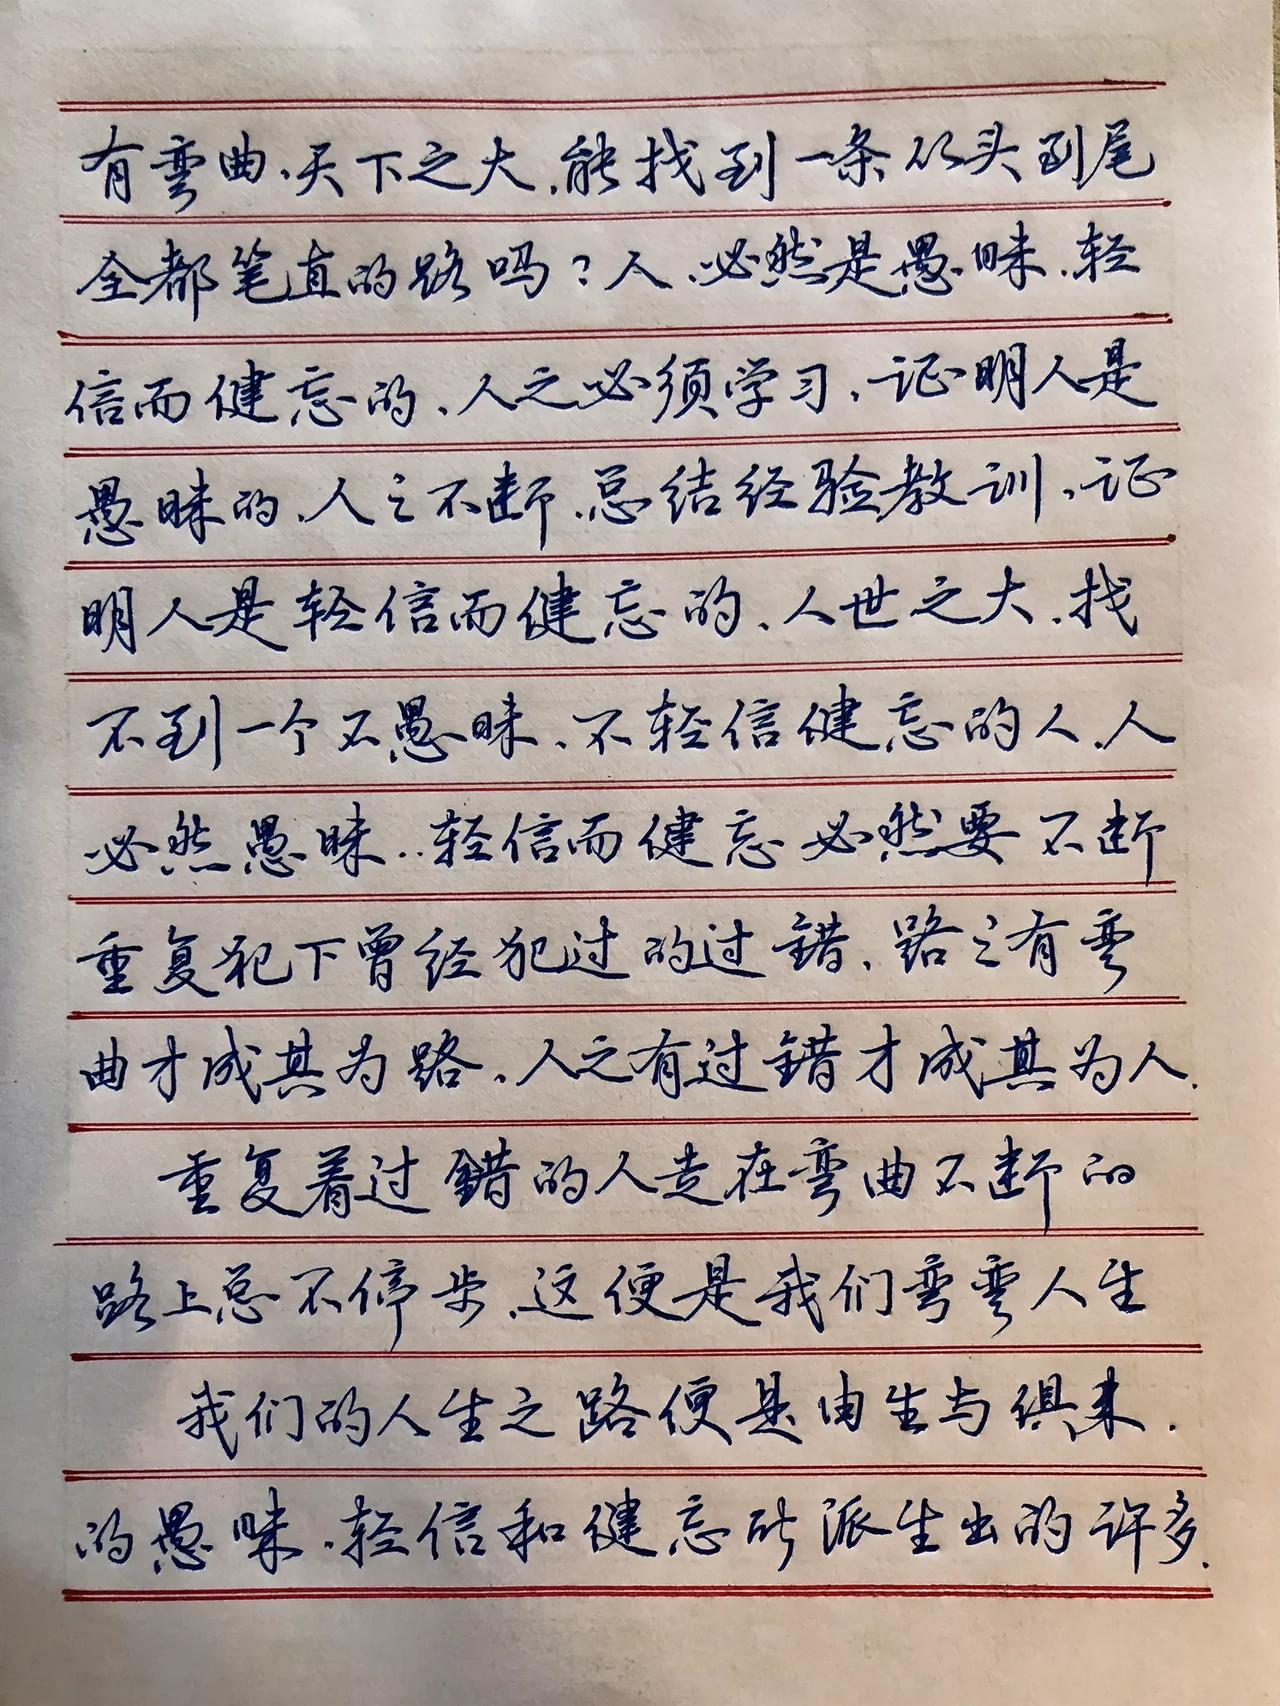 有弯曲、天下之大、能找到一条从头到尾
全都笔直的路吗?人、必然是愚昧、轻
信而健忘的、人之必须学习、证明人是
愚昧的、人之不断、总结经验教训、证
明人是轻信而健忘的、人世之大、找
不到一个不愚昧、不轻信健忘的人、人
必然愚昧、、轻信而健忘必然要不断
重复犯下曾经犯过的过错、路之有弯
曲才成其为路、人之有过错才成其为人、
重复着过错的人走在弯曲不断的
路上总不停步、这便是我们弯弯人生
我们的人生之路便是由生与俱来、
的愚昧、轻信和健忘所派生出的许多、